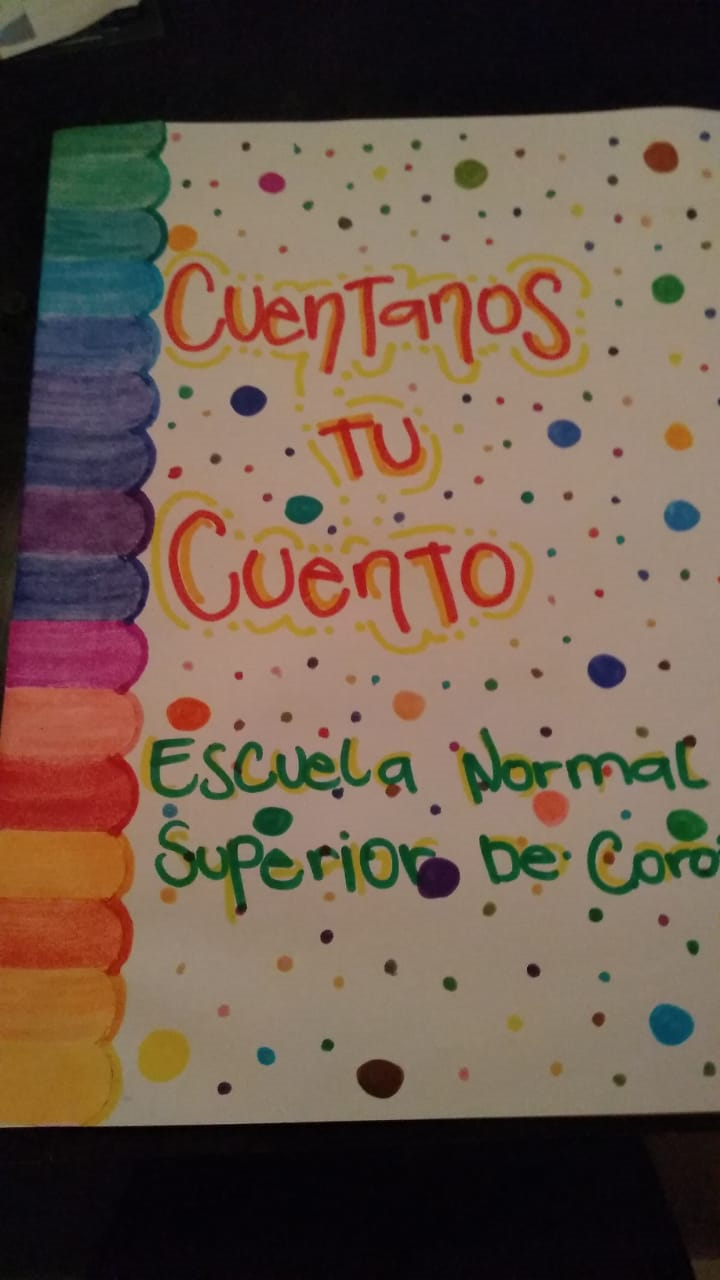 Cuentanos
Tu
Cuento
Escuela Normal
Superior De